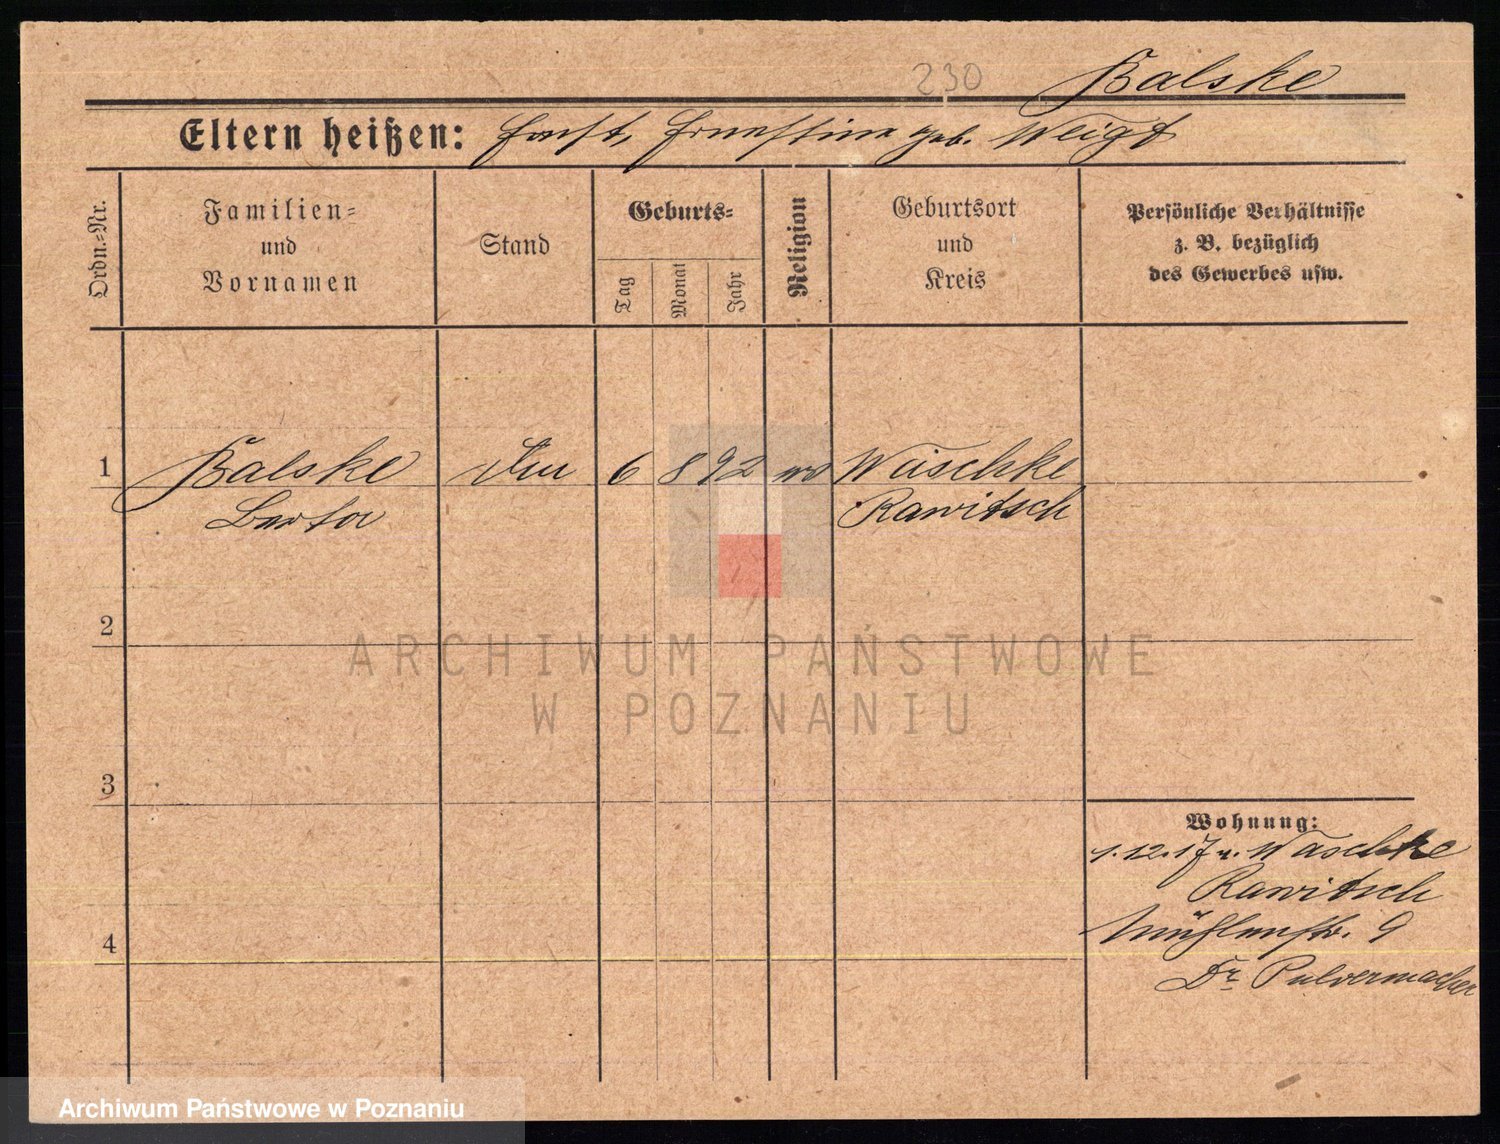 230 Balske
Eltern heißen: Ernst, Ernestine geb. Weigt
Ordn.-Nr.
Familien-
und
Vornamen
Stand
Geburts-
Tag
Monat
Jahr
Religion
Geburtsort
und
Kreis
Persönliche Verhältnisse
z. B. bezüglich
des Gewerbes usw.
1 Balske 6 8 92 Waschke
Rawitsch
2
ARCHIWUM PAŃSTWOWE
W POZNANIU
3
Wohnung:
1.12.17 v. Waschke
Rawitsch
4 Mühlenstr. 9
Dr Pulvermacher
Archiwum Państwowe w Poznaniu